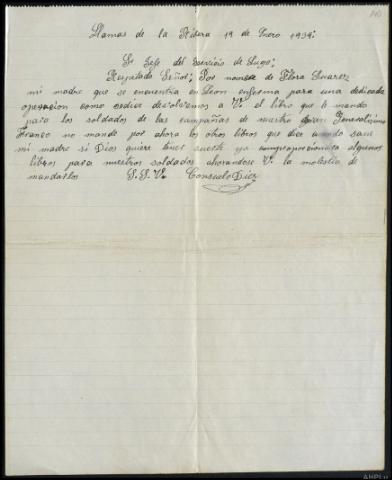 Llamas de la Ribera 19 de Enero 1939:
Sr Jefe del Servicio de Lugo:
Respetado Señor: Por manea de Flora Suarez
mi madre que se encuentra en Leon enferma para una dedicada
operacion como ordice devolvemos a V. el libro que le mando
para los soldados de las campañas de nuestro Gran Generalisimo
Franco no mande por ahora los otros libros que dice sane
mi madre si Dios quiere tener suerte ya algunos
libros para nuestros soldados ahorandose V. la molestia de
mandarlos S.S.V. Consuelo Diez
AHPLu